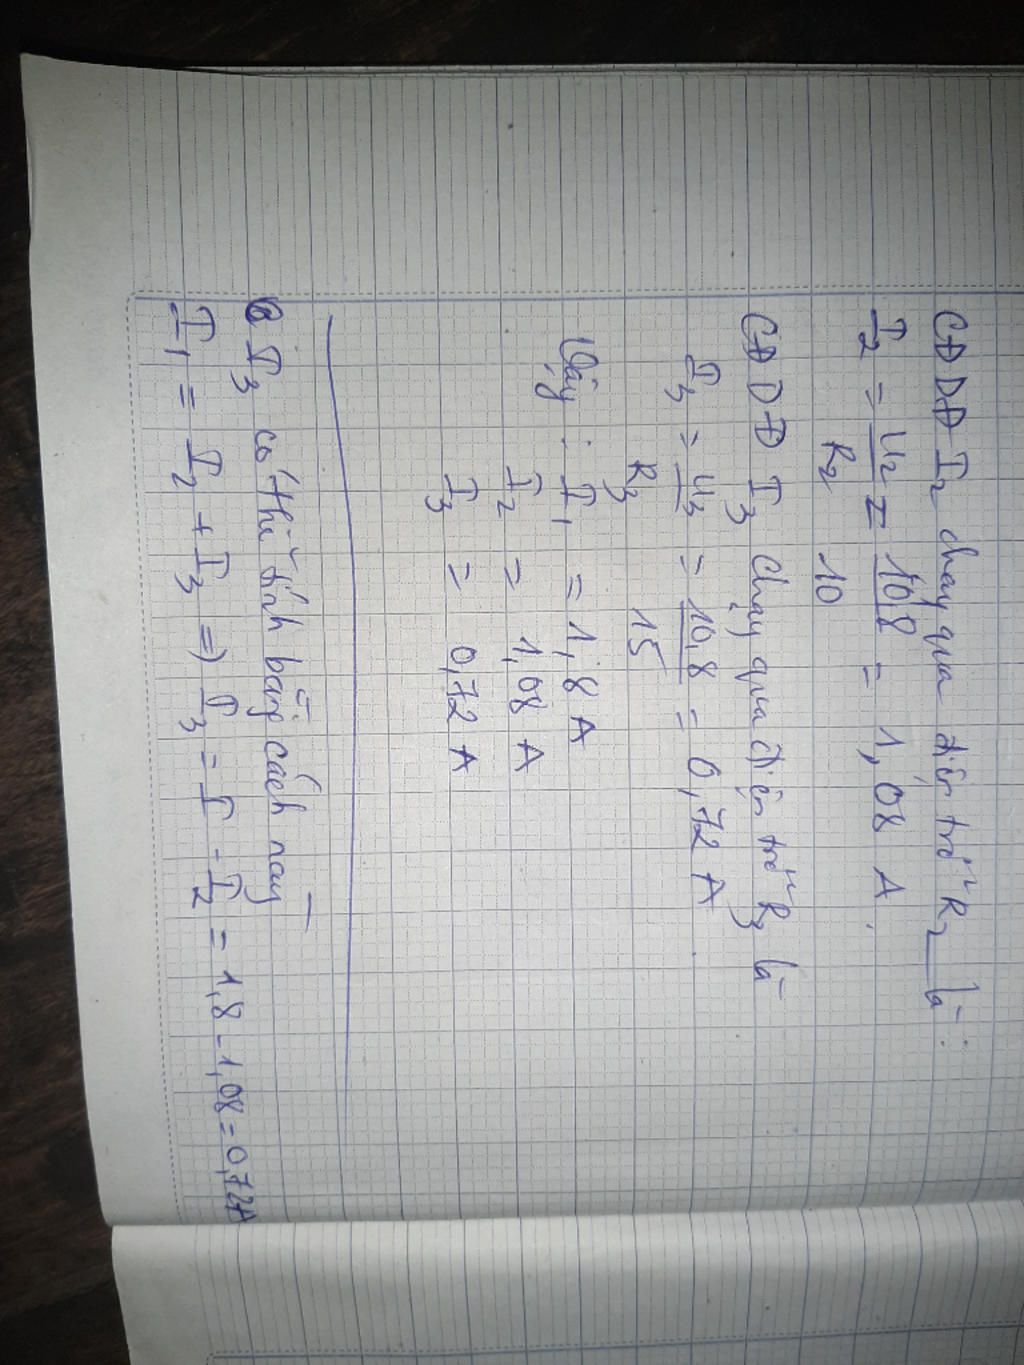 CĐDĐ I2 chạy qua điện trở R2 là :
I2 = U2/R2 = 10,8/10 = 1,08 A.
CĐDĐ I3 chạy qua điện trở R3 là
I3 = U3/R3 = 10,8/15 = 0,72 A
Vậy : I1 = 1,8 A
I2 = 1,08 A
I3 = 0,72 A
I3 có thể tính bằng cách này
I1 = I2 + I3 => I3 = I - I2 = 1,8 - 1,08 = 0,72A